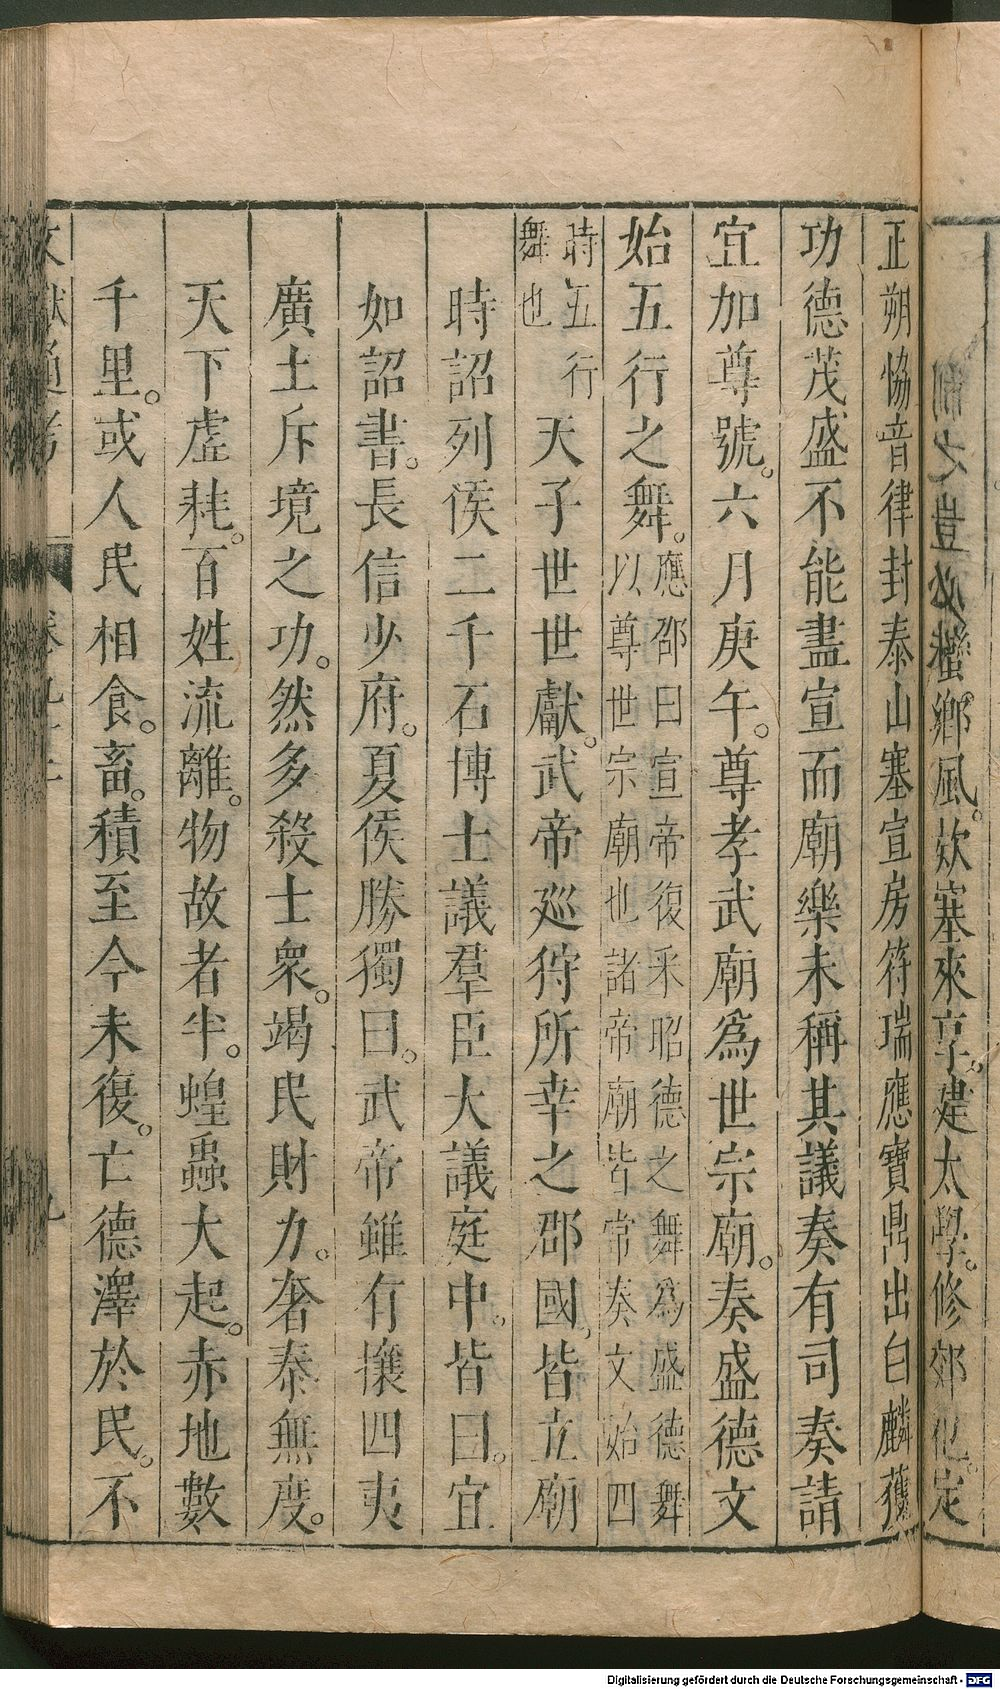 鄉風。欵塞來享。建太學。修郊祀。定
正朔恊音律封泰山塞宣房符瑞應寶鼎出白麟獲
功德茂盛不能盡宣而廟樂未稱其議奏有司奏請
宜加尊號。六月庚午。尊孝武廟爲世宗廟。奏盛德文
始五行之舞。應邵曰宣帝復采昭德之舞爲盛德舞
以尊世宗廟也諸帝廟皆常奏文始四
時五行
舞也
天子世世獻。武帝巡狩所幸之郡國。皆立廟
時詔列侯二千石博士議羣臣大議庭中。皆曰。宜
如詔書。長信少府。夏侯勝獨曰。武帝雖有攘四夷
廣土斥境之功。然多殺士衆。竭民財力。奢泰無度。
天下虛耗。百姓流離。物故者半。蝗蟲大起。赤地數
千里。或人民相食。畜。積至今未復。亡德澤於民。不
Digitalisierung gefördert durch die Deutsche Forschungsgemeinschaft - DFG